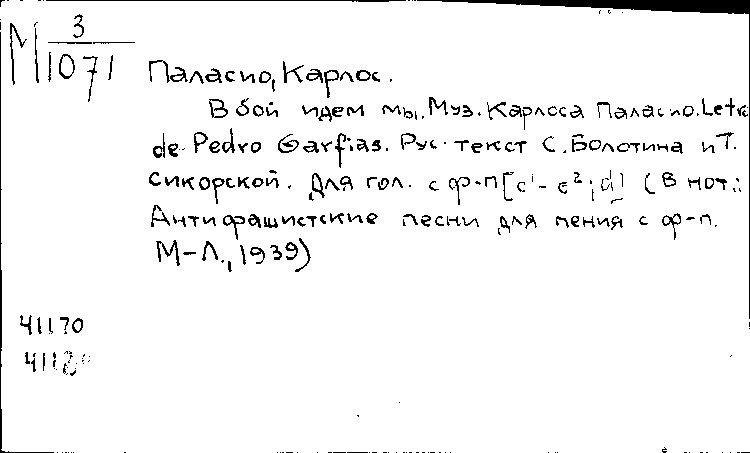 М 3
1071
Паласио, Карлос.
В бой идем мы. Муз. Карлоса Паласио. Letra
de Pedro Garfias. Рус. текст С. Болотина и Т.
Сикорской. Для гол. с ф-п [c¹ - e²; d] (В нот.:
Антифашистские песни для пения с ф-п.
М-Л., 1939)
41170